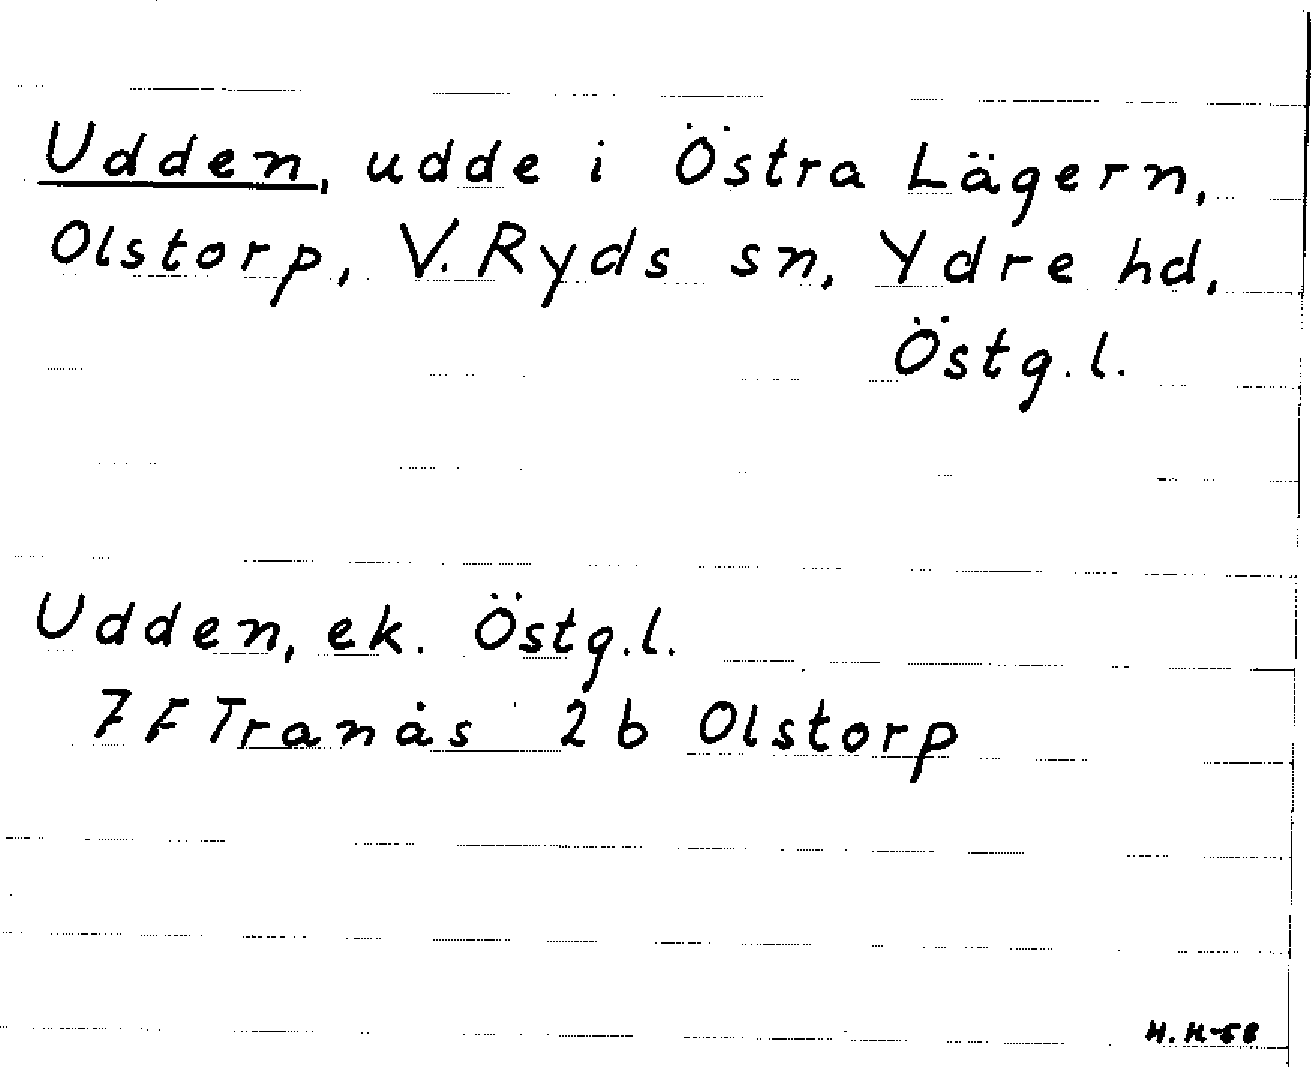 Udden, udde i Östra Lägern,
Olstorp, V. Ryds sn, Ydre hd,
Östg. l.
Udden, ek. Östg. l.
7 F Tranås 2 b Olstorp
H. H-58